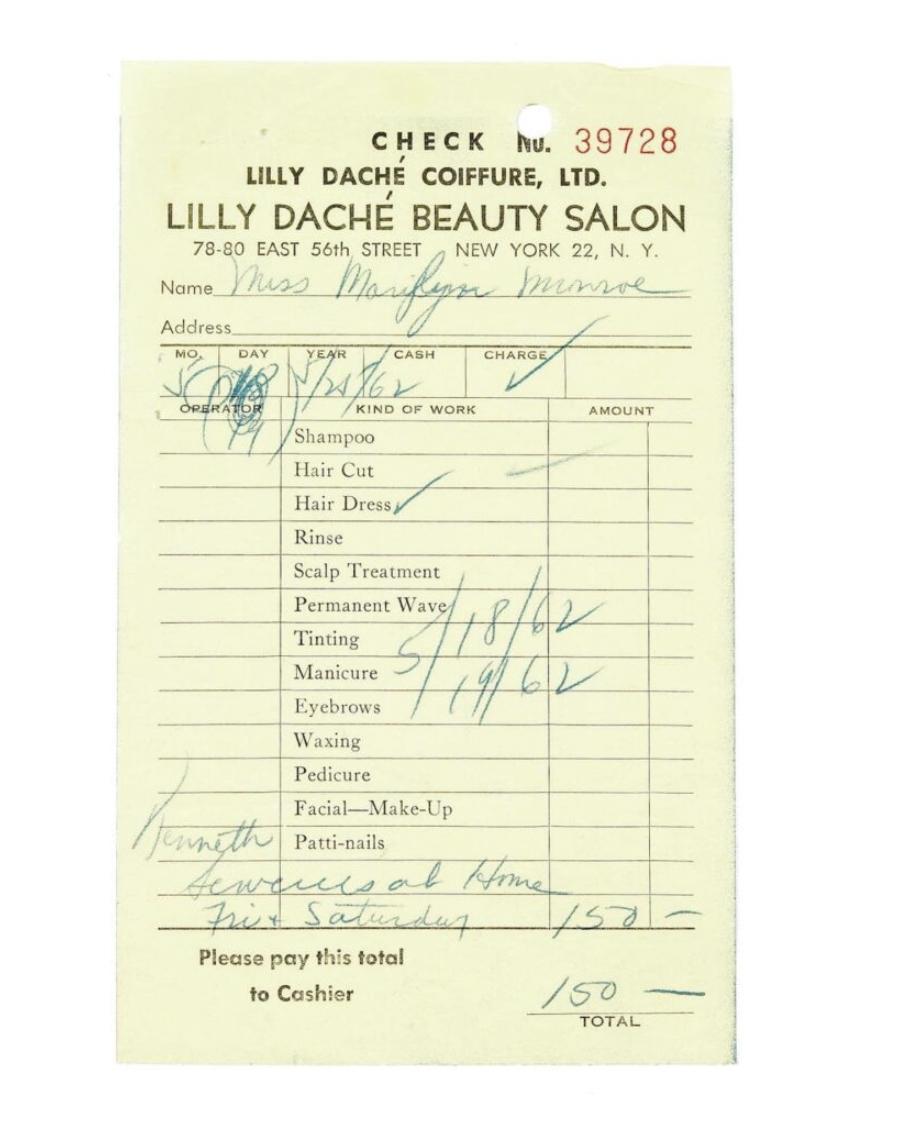 CHECK No. 39728
LILLY DACHÉ COIFFURE, LTD.
LILLY DACHÉ BEAUTY SALON
78-80 EAST 56th STREET NEW YORK 22, N. Y.
Name Miss Marilynn Monroe
Address
MO. DAY YEAR CASH CHARGE ✓
5/21/62
OPERATOR KIND OF WORK AMOUNT
Shampoo
Hair Cut
Hair Dress ✓
Rinse
Scalp Treatment
Permanent Wave
5/18/62
Tinting
Manicure
19/62
Eyebrows
Waxing
Pedicure
Facial—Make-Up
Kenneth Patti-nails
Services at Home
Fri + Saturday 150 —
Please pay this total
to Cashier
150 —
TOTAL